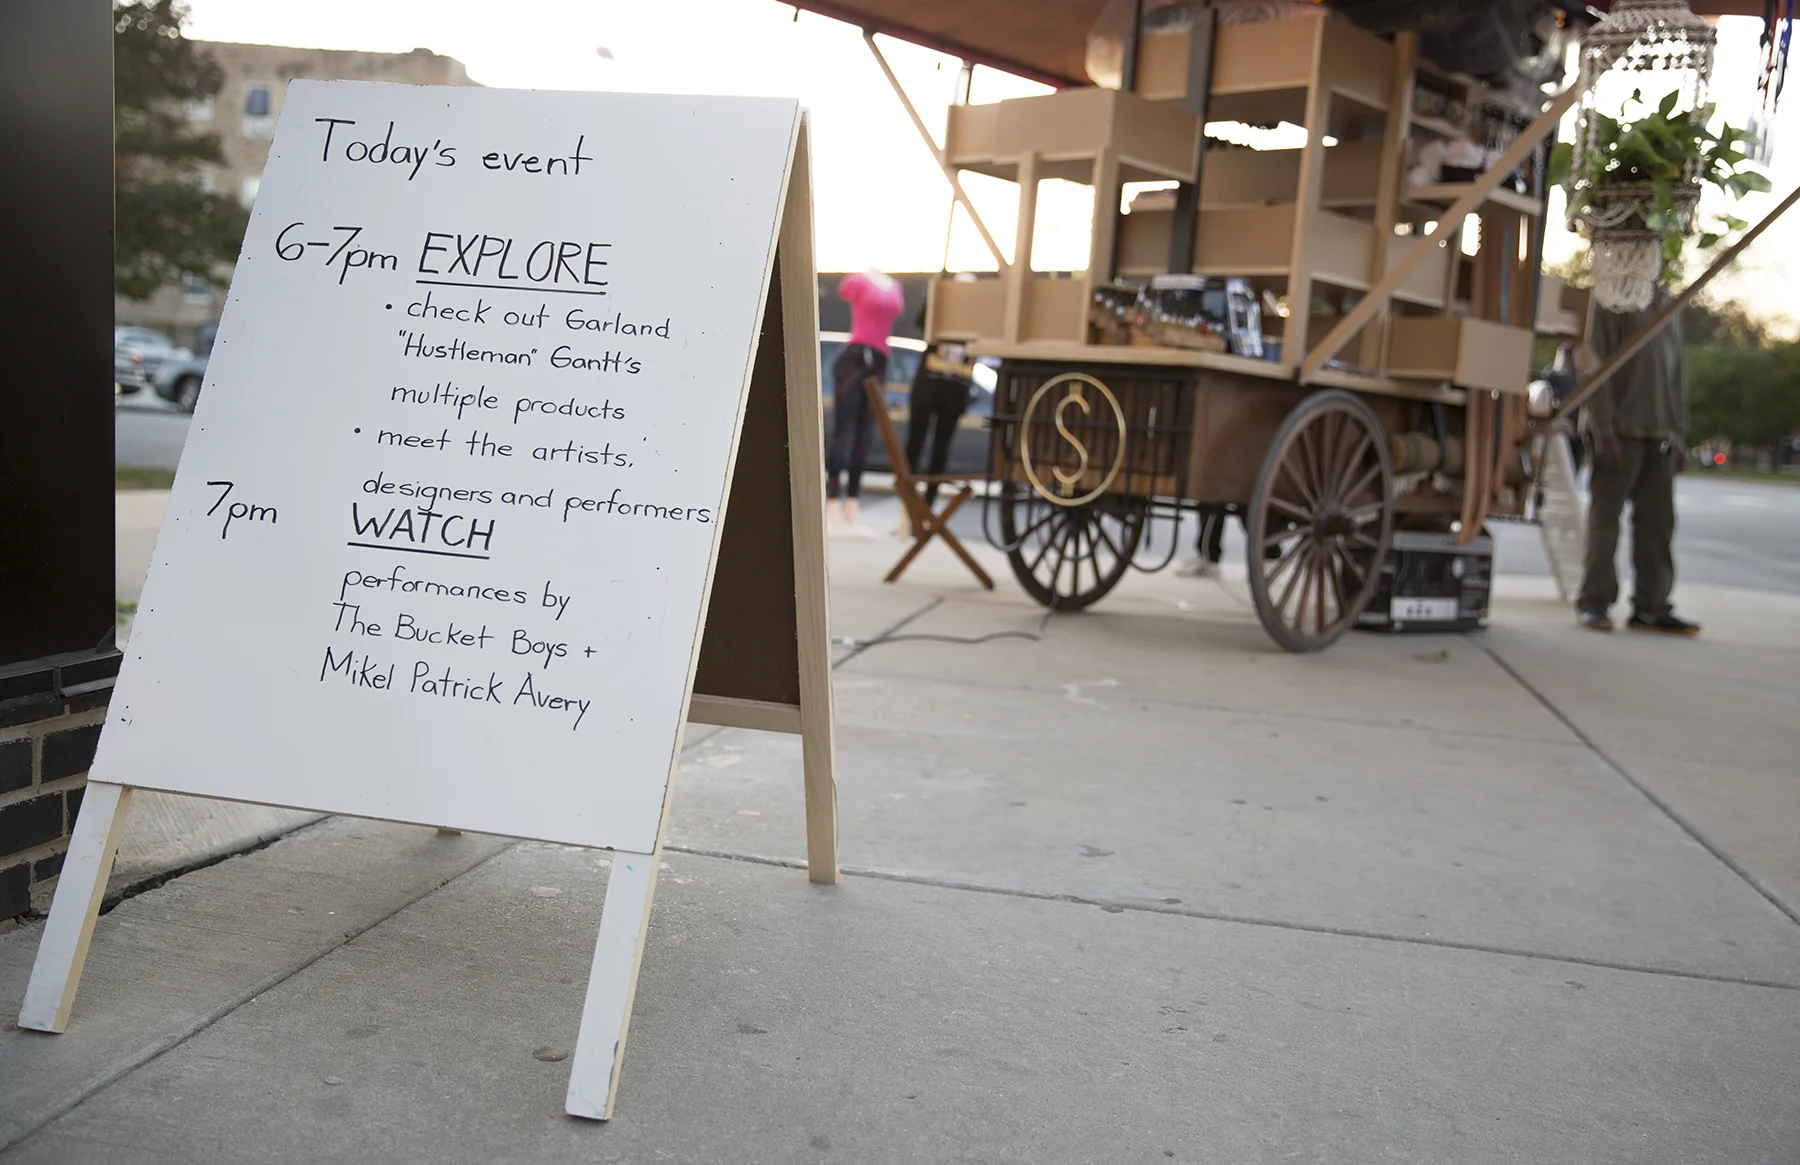 Today's event
6-7pm EXPLORE
• check out Garland
"Hustleman" Gantt's
multiple products
• meet the artists,
designers and performers.
7pm WATCH
performances by
The Bucket Boys +
Mikel Patrick Avery
$